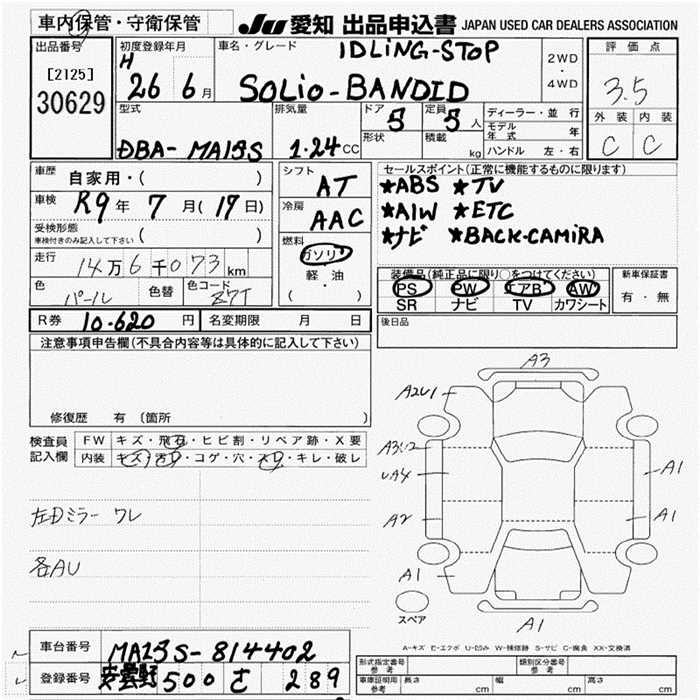 車内保管・守衛保管 JU 愛知 出品申込書 JAPAN USED CAR DEALERS ASSOCIATION
出品番号 初度登録年月 車名・グレード IDLiNG-STOP 2WD・4WD 評価点
[2125] H 26 6月 SOLiO-BANDiD 3.5
30629 型式 排気量 ドア 5 定員 5人 ディーラー・並行 外装 内装
モデル年式 年
形状 積載 kg ハンドル 左・右 C C
DBA-MA15S 1.24CC
車歴 自家用・( ) シフト AT セールスポイント(正常に機能するものに限り)
車検 R9年 7月(17日) 冷房 AAC ★ABS ★TV
受検形態 ( ) ★A/W ★ETC
車検付きのみ記入して下さい 燃料 ガソリン ★ナビ ★BACK-CAMiRA
走行 14万6千073km 軽・油
装備品(純正品に限り○をつけてください) 新車保証書
色 パール 色替 色コード Z7T ( ・ ) PS PW エアB AW 有・無
SR ナビ TV カワシート
R券 10-620円 名変期限 月 日 後日品
注意事項申告欄(不具合内容等は具体的に記入して下さい)
修復歴 有 (箇所
検査員記入欄 FW キズ・飛石・ヒビ割・リペア跡・X要
内装 キズ・汚レ・コゲ・穴・スレ・キレ・破レ
左Dミラー ワレ
各AU
A3
A2U1
A1
A2
A1
A1
A1
A1
スペア
A-キズ E-エクボ U-凹み W-補修跡 S-サビ C-腐食 XX-交換済
車台番号 MA15S-814402
登録番号 安曇野 500 さ 289
形式指定番号 参考 類別区分番号 参考
車庫証明用 参考 長さ cm 幅 cm 高さ cm